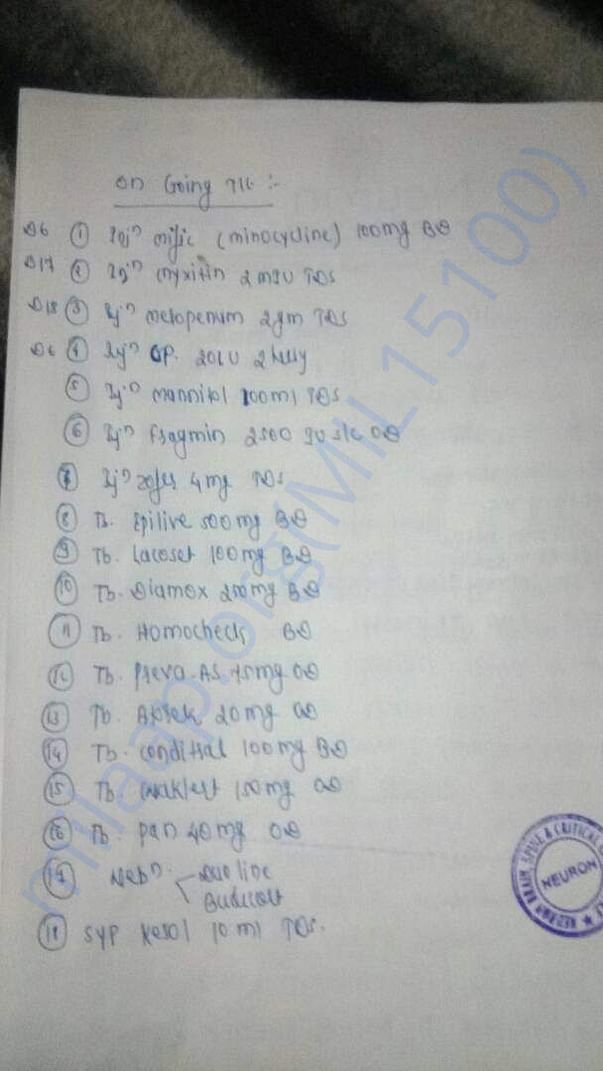 on Going
D6 ① Inj n (minocycline) 100mg BD
D17 ② Inj n 2 TDS
D18 ③ Inj n meropenum 2gm TDS
D6 ④ Inj n
⑤ Inj n mannitol 100ml TDS
⑥ Inj n Fragmin 2500 IU s/c OD
⑦ Inj n Zofer 4mg TDS
⑧ Tb. Epilive 500mg BD
⑨ Tb. Lacoset 100mg BD
⑩ Tb. Diamox 250mg BD
⑪ Tb. Homocheck BD
⑫ Tb. Preva-AS 75mg OD
⑬ Tb. 20mg OD
⑭ Tb. 100mg BD
⑮ Tb. 150mg OD
⑯ Tb. pan 40mg OD
⑰ Neb n. Duoline
Budecort
⑱ SYP Kesol 10ml TDS.
NEURON
milaap.org(MIL15100)